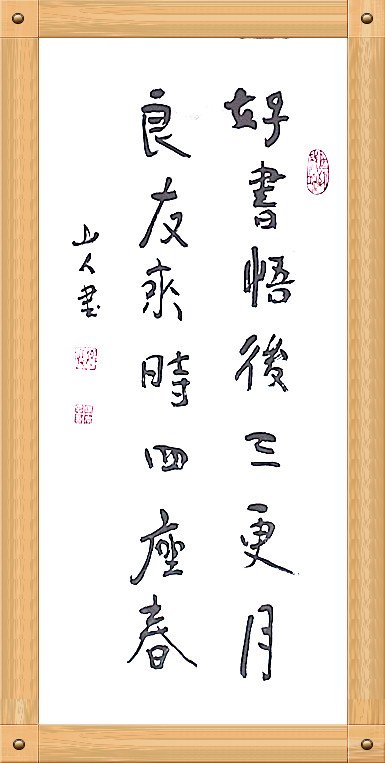 好書悟後三更月
良友來時四座春
山人書